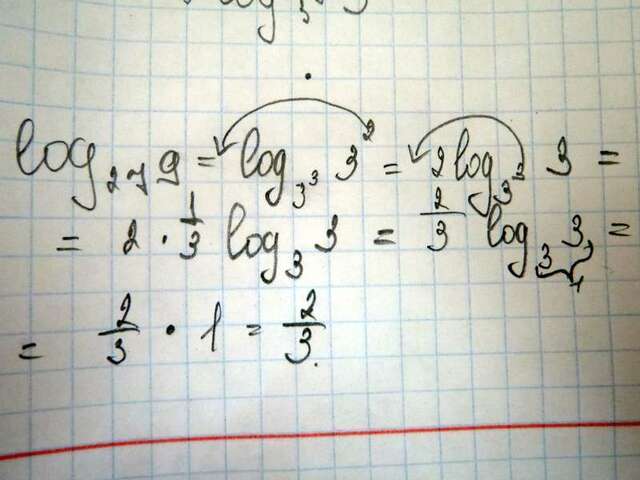 log₂₇ 9 = log₃³ 3² = 2 log₃³ 3 =
= 2 · 1/3 log₃ 3 = 2/3 log₃ 3 =
1
= 2/3 · 1 = 2/3.